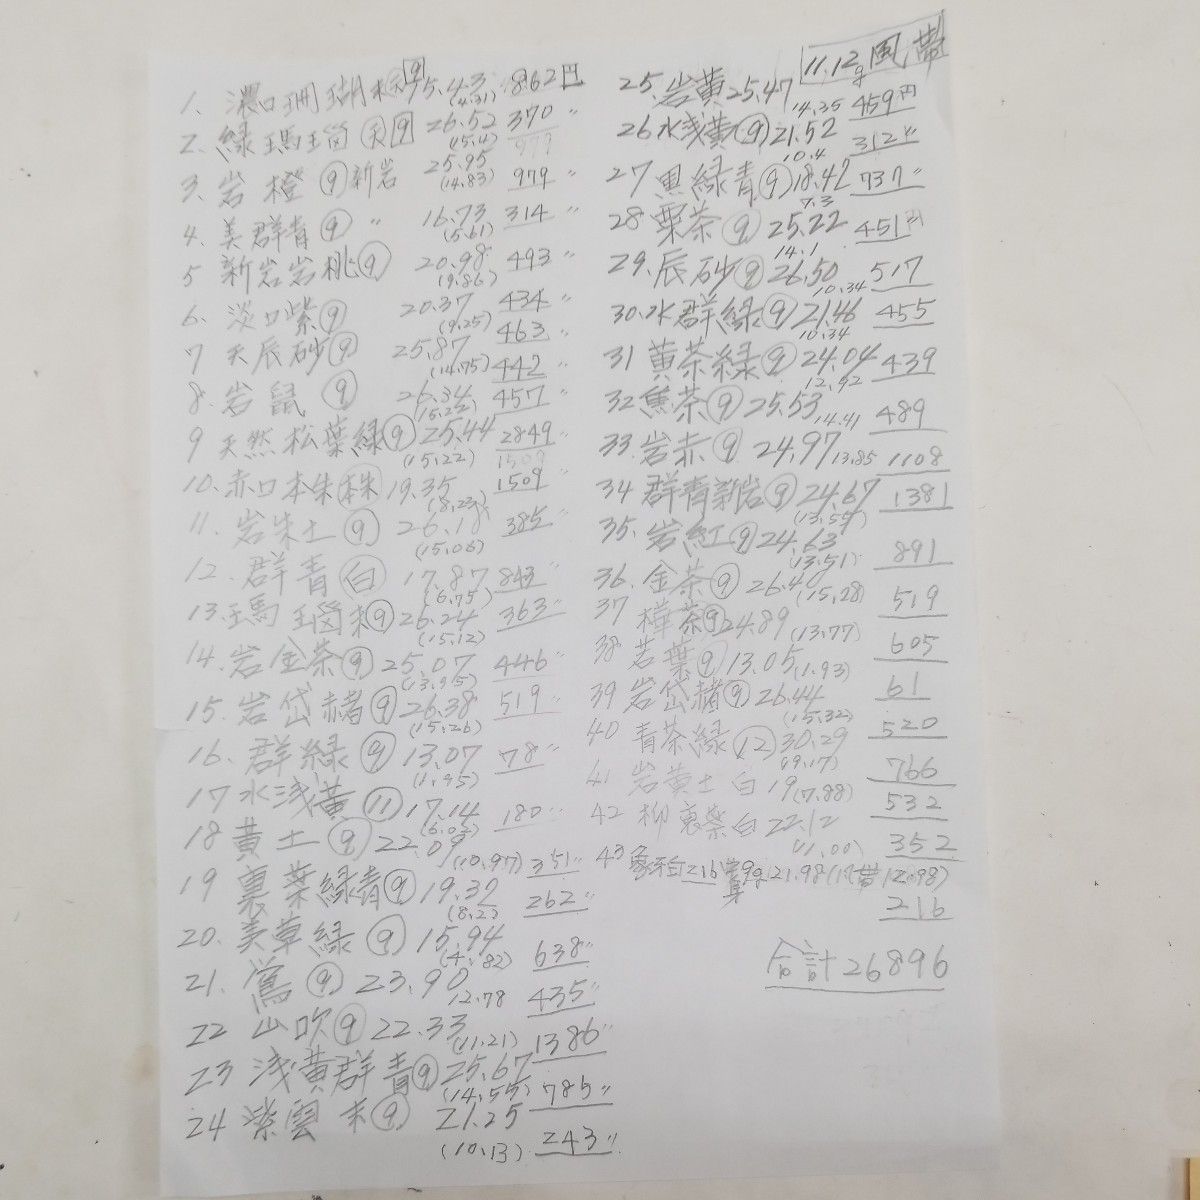 11.12g 風帯
1. 濃口珊瑚末⑨ 15.43 (4.31) 862円
2. 緑瑪瑙 天⑨ 26.52 (15.4) 370〃
3. 岩橙⑨新岩 25.95 (14.83) 979〃
4. 美群青⑨ 〃 16.73 (5.61) 314〃
5 新岩岩桃⑨ 20.98 (9.86) 493〃
6. 淡口紫⑨ 20.37 (9.25) 434〃
463〃
7 天辰砂⑨ 25.87 (14.75) 442〃
8. 岩鼠⑨ 26.34 (15.22) 457〃
9 天然松葉緑⑨ 25.44 (15.22) 2849〃
10. 赤口本朱 19.35 (8.23) 1509〃
11. 岩朱土⑨ 26.18 (15.06) 385〃
12. 群青 白 17.87 (6.75) 843〃
13. 瑪瑙末⑨ 26.24 (15.12) 363〃
14. 岩金茶⑨ 25.07 (13.95) 446〃
15. 岩岱赭⑨ 26.38 (15.26) 519〃
16. 群緑⑨ 13.07 (1.95) 78〃
17 水浅黄⑪ 17.14 (6.02) 180〃
18 黄土⑨ 22.09 (10.97) 351〃
19 裏葉緑青⑨ 19.32 (8.2) 262〃
20. 美草緑⑨ 15.94 (4.82) 638〃
21. 鶯⑨ 23.90 12.78 435〃
22 山吹⑨ 22.33 (11.21) 1386〃
23 浅黄群青⑨ 25.67 (14.55) 785〃
24 紫雲末⑨ 21.25 (10.13) 243〃
25. 岩黄 25.47 14.35 459円
26 水浅黄⑨ 21.52 10.4 312〃
27 黒緑青⑨ 18.42 7.3 737〃
28 栗茶⑨ 25.22 14.1 451円
29. 辰砂⑨ 26.50 10.34 517
30. 水群緑⑨ 21.46 10.34 455
31 黄茶緑⑨ 24.04 12.92 439
32 焦茶⑨ 25.53 14.41 489
33. 岩赤⑨ 24.97 13.85 1108
34 群青新岩⑨ 24.67 (13.55) 1381
35. 岩紅⑨ 24.63 (13.51) 891
36. 金茶⑨ 26.40 (15.28) 519
37 樺茶⑨ 24.89 (13.77) 605
38 若葉⑨ 13.05 (1.93) 61
39 岩岱赭⑨ 26.44 (15.32) 520
40 青茶緑⑫ 30.29 (19.17) 766
41 岩黄土 白 19 (7.88) 532
42 柳裏葉白 22.12 (11.00) 352
43 象牙白216 9g 21.98 (12.98)
216
合計26896